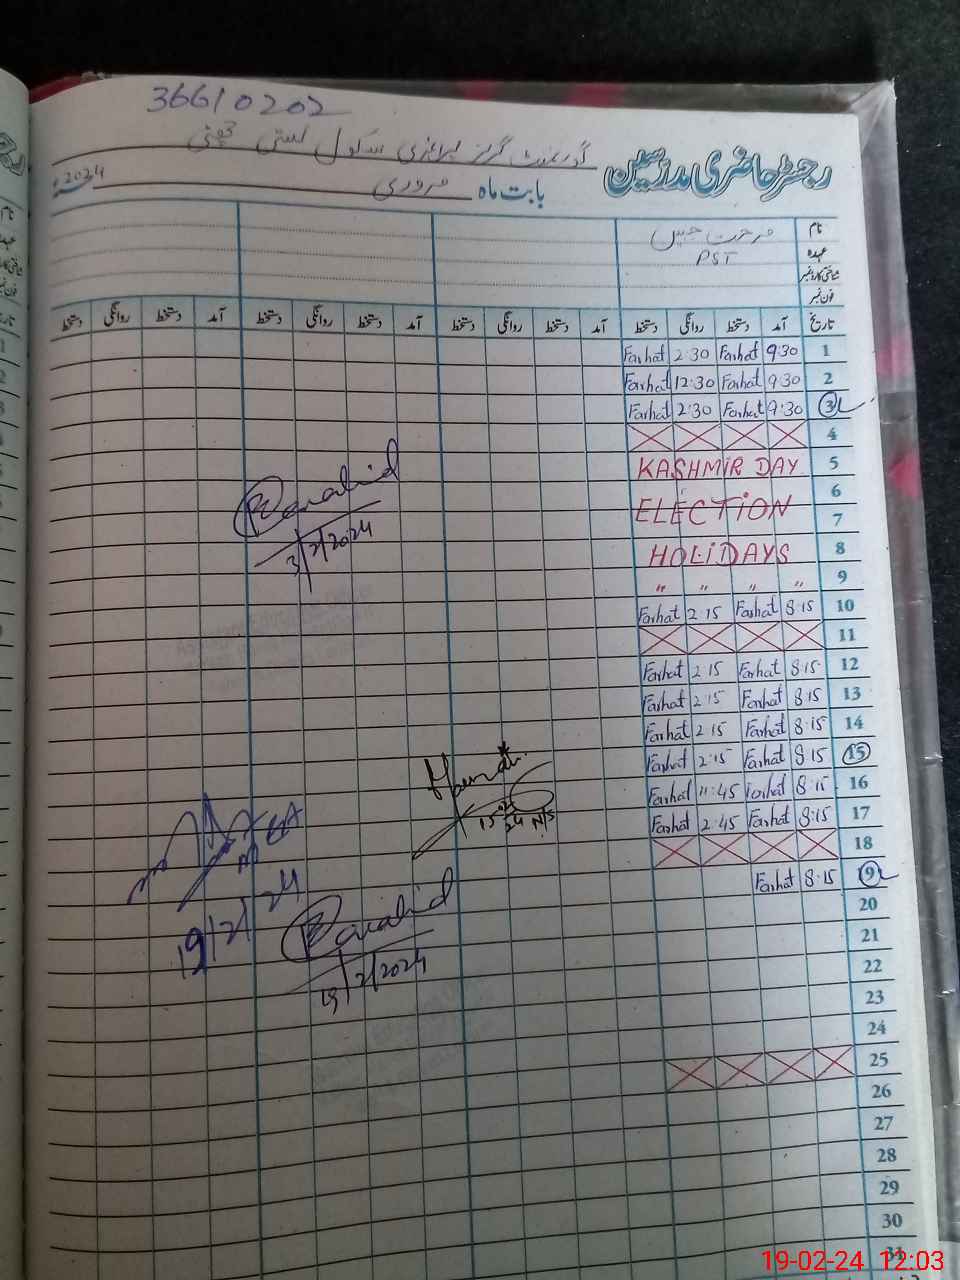 36610202
گورنمنٹ گرلز پرائمری سکول بستی
رجسٹر حاضری مدرسین
بابت ماہ فروری 2024ء
نام فرحت جبیں
عہدہ PST
شناختی کارڈ نمبر
فون نمبر
تاریخ آمد دستخط روانگی دستخط آمد دستخط روانگی دستخط آمد دستخط روانگی دستخط آمد دستخط روانگی دستخط
Farhat 2:30 Farhat 9:30 1
Farhat 12:30 Farhat 9:30 2
Farhat 2:30 Farhat 9:30 3
4
KASHMIR DAY 5
6
ELECTION 7
HOLIDAYS 8
" " " " 9
Farhat 2:15 Farhat 8:15 10
11
Farhat 2:15 Farhat 8:15 12
Farhat 2:15 Farhat 8:15 13
Farhat 2:15 Farhat 8:15 14
Farhat 2:15 Farhat 8:15 15
Farhat 11:45 Farhat 8:15 16
Farhat 2:45 Farhat 8:15 17
18
Farhat 8:15 19
20
21
22
23
24
25
26
27
28
29
30
31
3/2/2024
19/2/24
19/2/2024
19-02-24 12:03